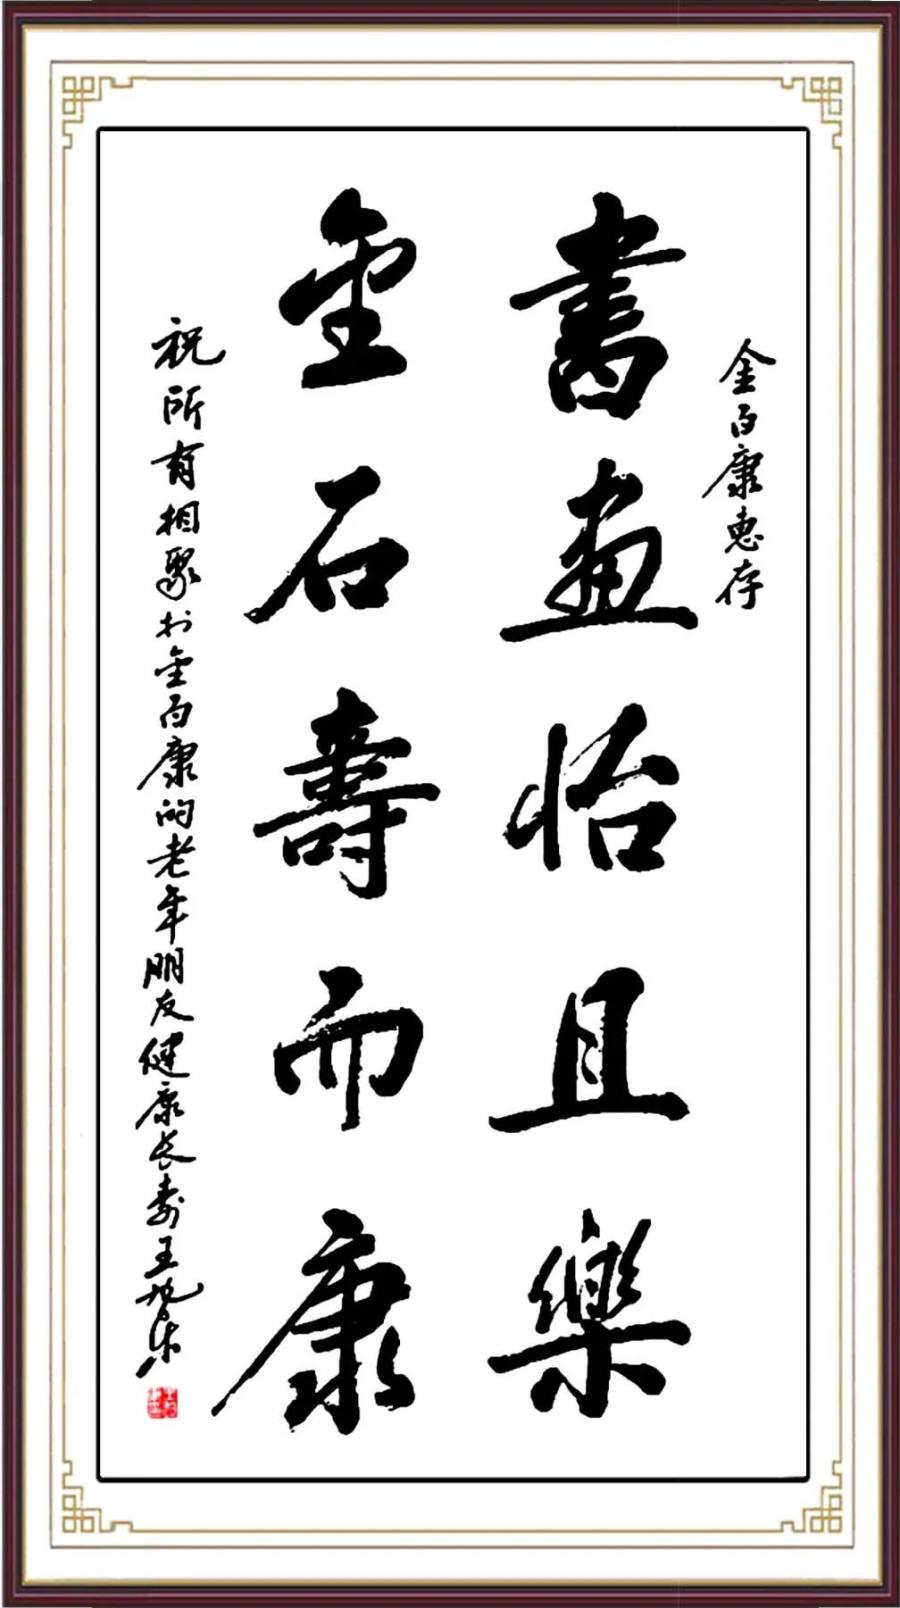 金百康惠存
書画怡且樂
金石壽而康
祝所有相聚於金百康的老年朋友健康长寿王旭东